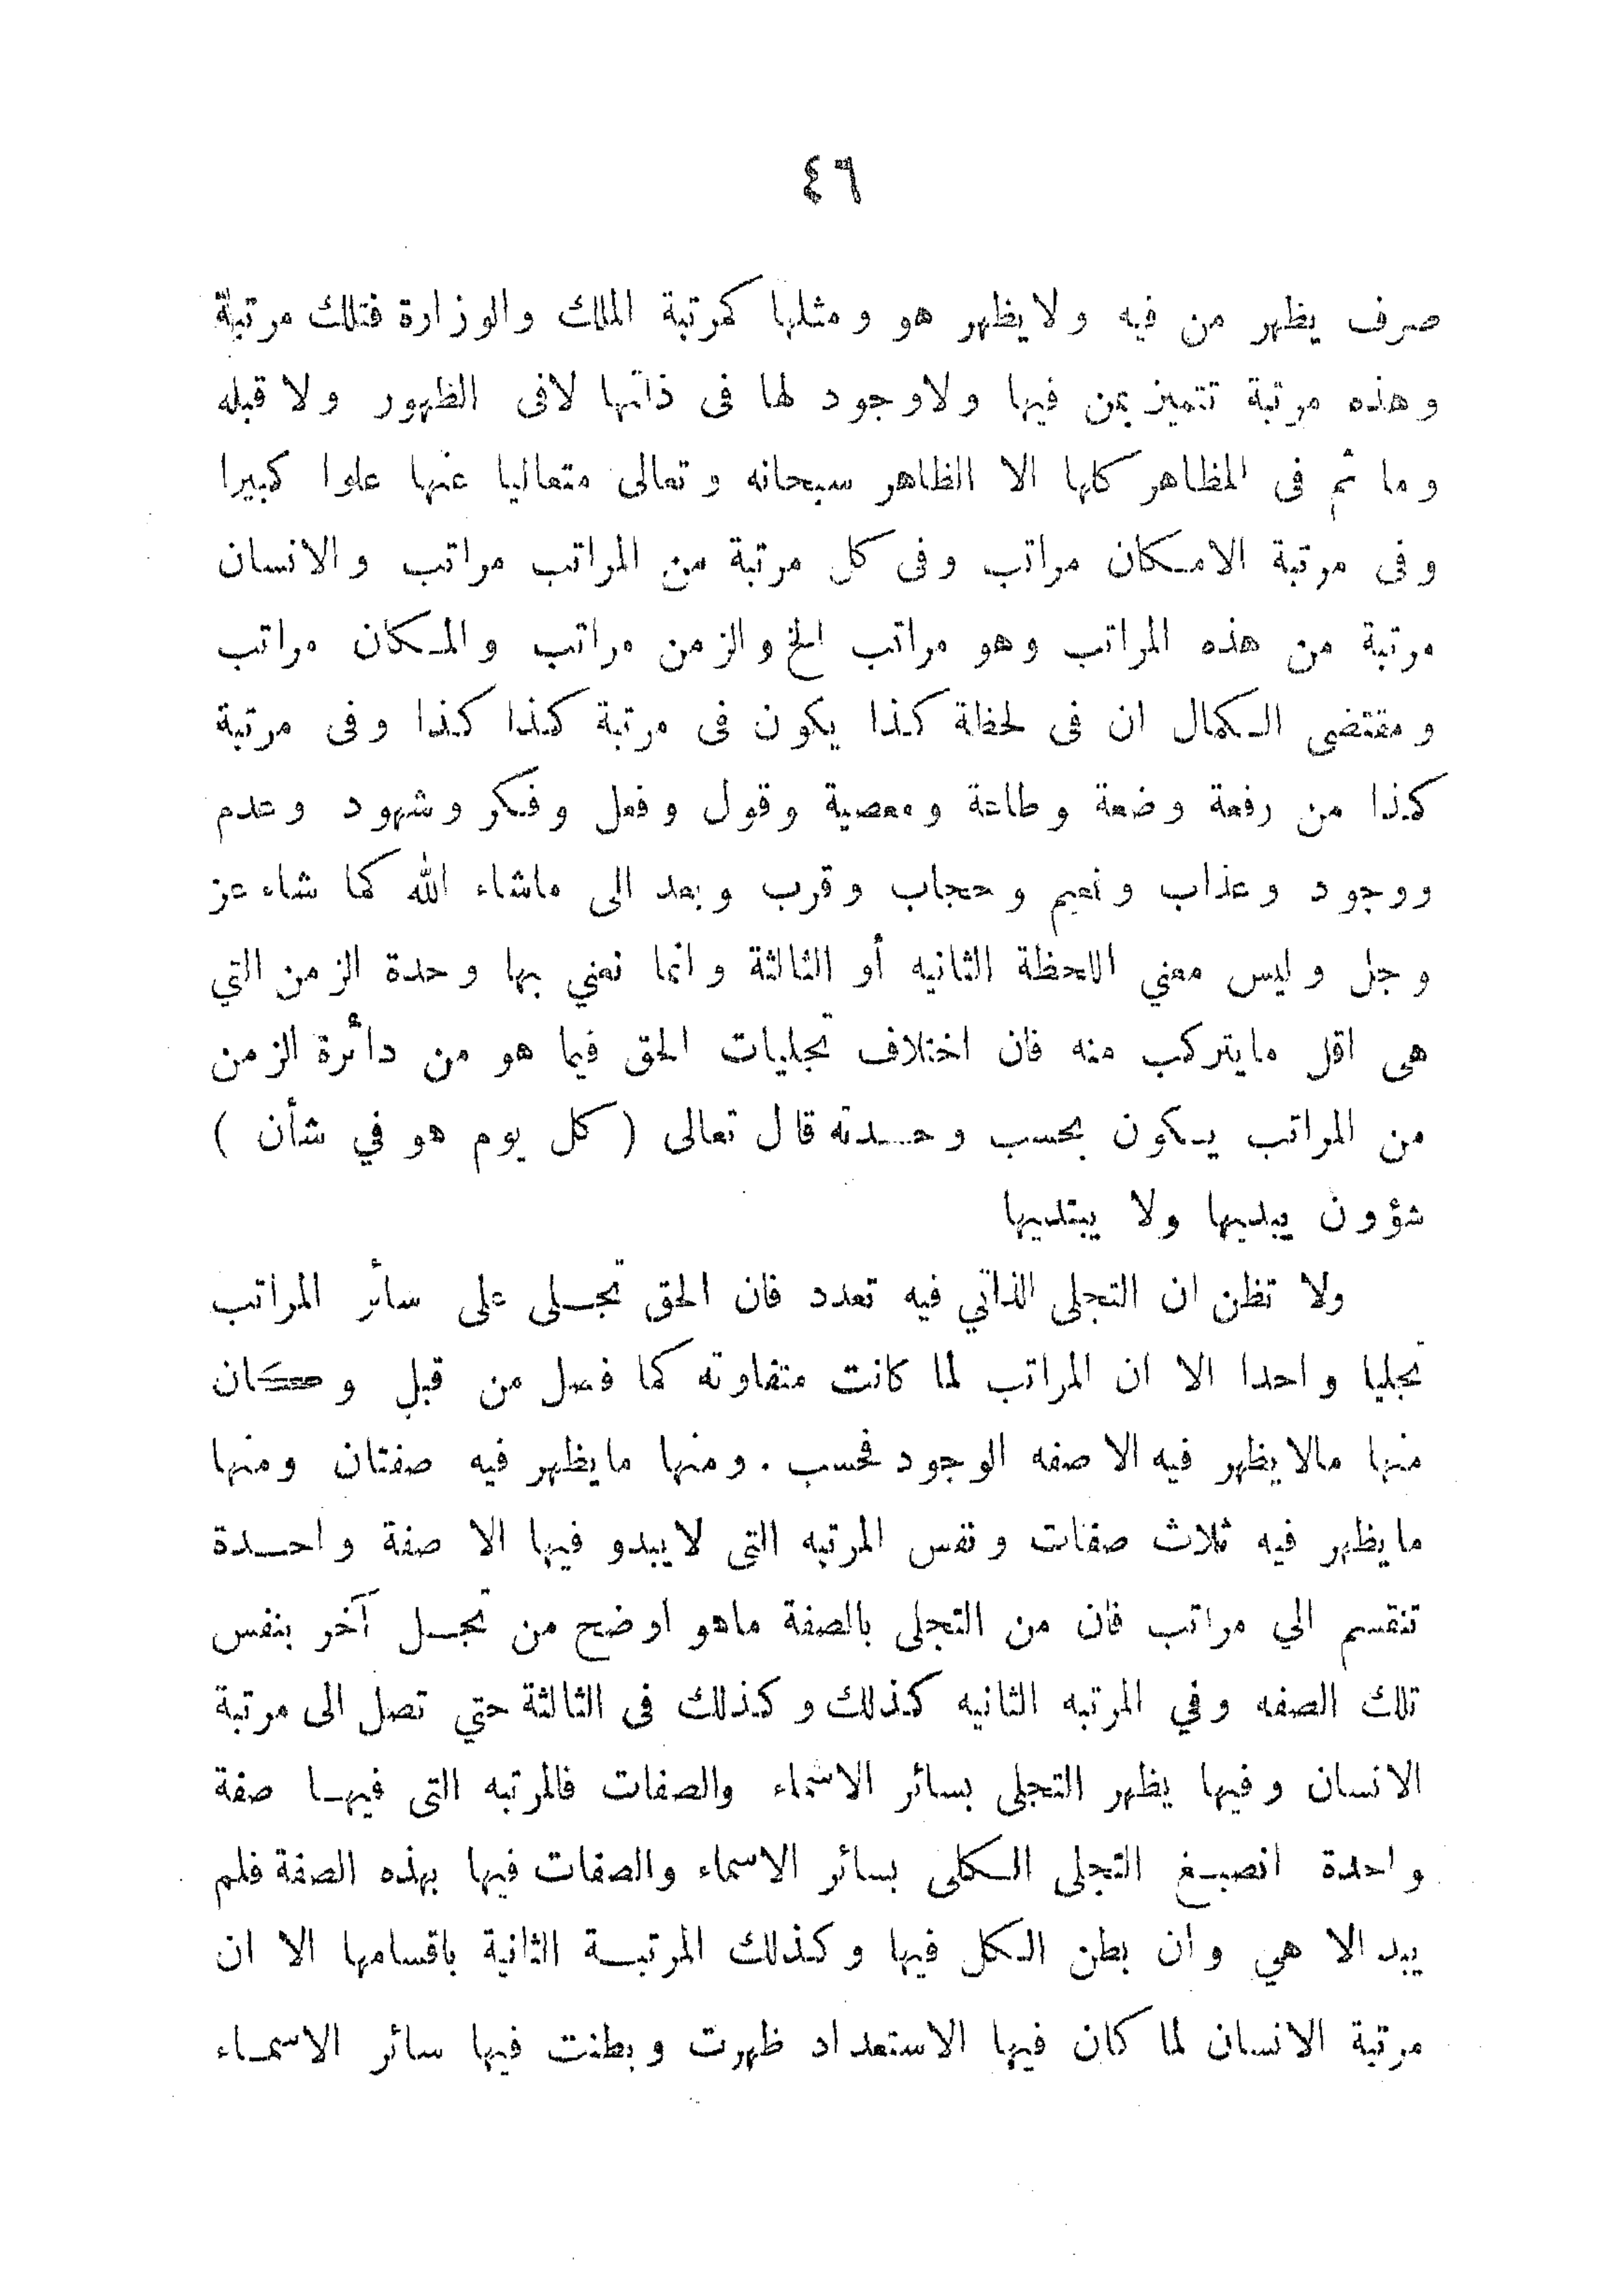 ٤٦
صرف يظهر من فيه ولا يظهر هو ومثلها كمرتبة الملك والوزارة فتلك مرتبة
وهذه مرتبة تتميز بمن فيها ولا وجود لها فى ذاتها لا فى الظهور ولا قبله
وما ثم فى المظاهر كلها الا الظاهر سبحانه وتعالى متعاليا عنها علوا كبيرا
وفى مرتبة الامكان مراتب وفى كل مرتبة من المراتب مراتب والانسان
مرتبة من هذه المراتب وهو مراتب الخ والزمن مراتب والمكان مراتب
ومقتضى الكمال ان فى لحظة كذا يكون فى مرتبة كذا كذا وفى مرتبة
كذا من رفعة وضعة وطاعة ومعصية وقول وفعل وفكر وشهود وعدم
ووجود وعذاب ونعيم وحجاب وقرب وبعد الى ماشاء الله كما شاء عز
وجل وليس معني اللحظة الثانيه أو الثالثة وانما نعني بها وحدة الزمن التي
هى اقل مايتركب منه فان اختلاف تجليات الحق فيما هو من دائرة الزمن
من المراتب يكون بحسب وحدته قال تعالى ( كل يوم هو في شأن )
شؤون يبديها ولا يبتديها
ولا تظن ان التجلى الذاتي فيه تعدد فان الحق تجلى على سائر المراتب
تجليا واحدا الا ان المراتب لما كانت متفاوته كما فصل من قبل وكان
منها مالا يظهر فيه الا صفه الوجود فحسب . ومنها مايظهر فيه صفتان ومنها
مايظهر فيه ثلاث صفات ونفس المرتبه التى لا يبدو فيها الا صفة واحدة
تنقسم الي مراتب فان من التجلى بالصفة ماهو اوضح من تجل آخر بنفس
تلك الصفه وفي المرتبه الثانيه كذلك وكذلك فى الثالثة حتي تصل الى مرتبة
الانسان وفيها يظهر التجلى بسائر الاسماء والصفات فالمرتبه التى فيها صفة
واحدة انصبغ التجلى الكلى بسائر الاسماء والصفات فيها بهذه الصفة فلم
يبد الا هي وان بطن الكل فيها وكذلك المرتبة الثانية باقسامها الا ان
مرتبة الانسان لما كان فيها الاستعداد ظهرت وبطنت فيها سائر الاسماء